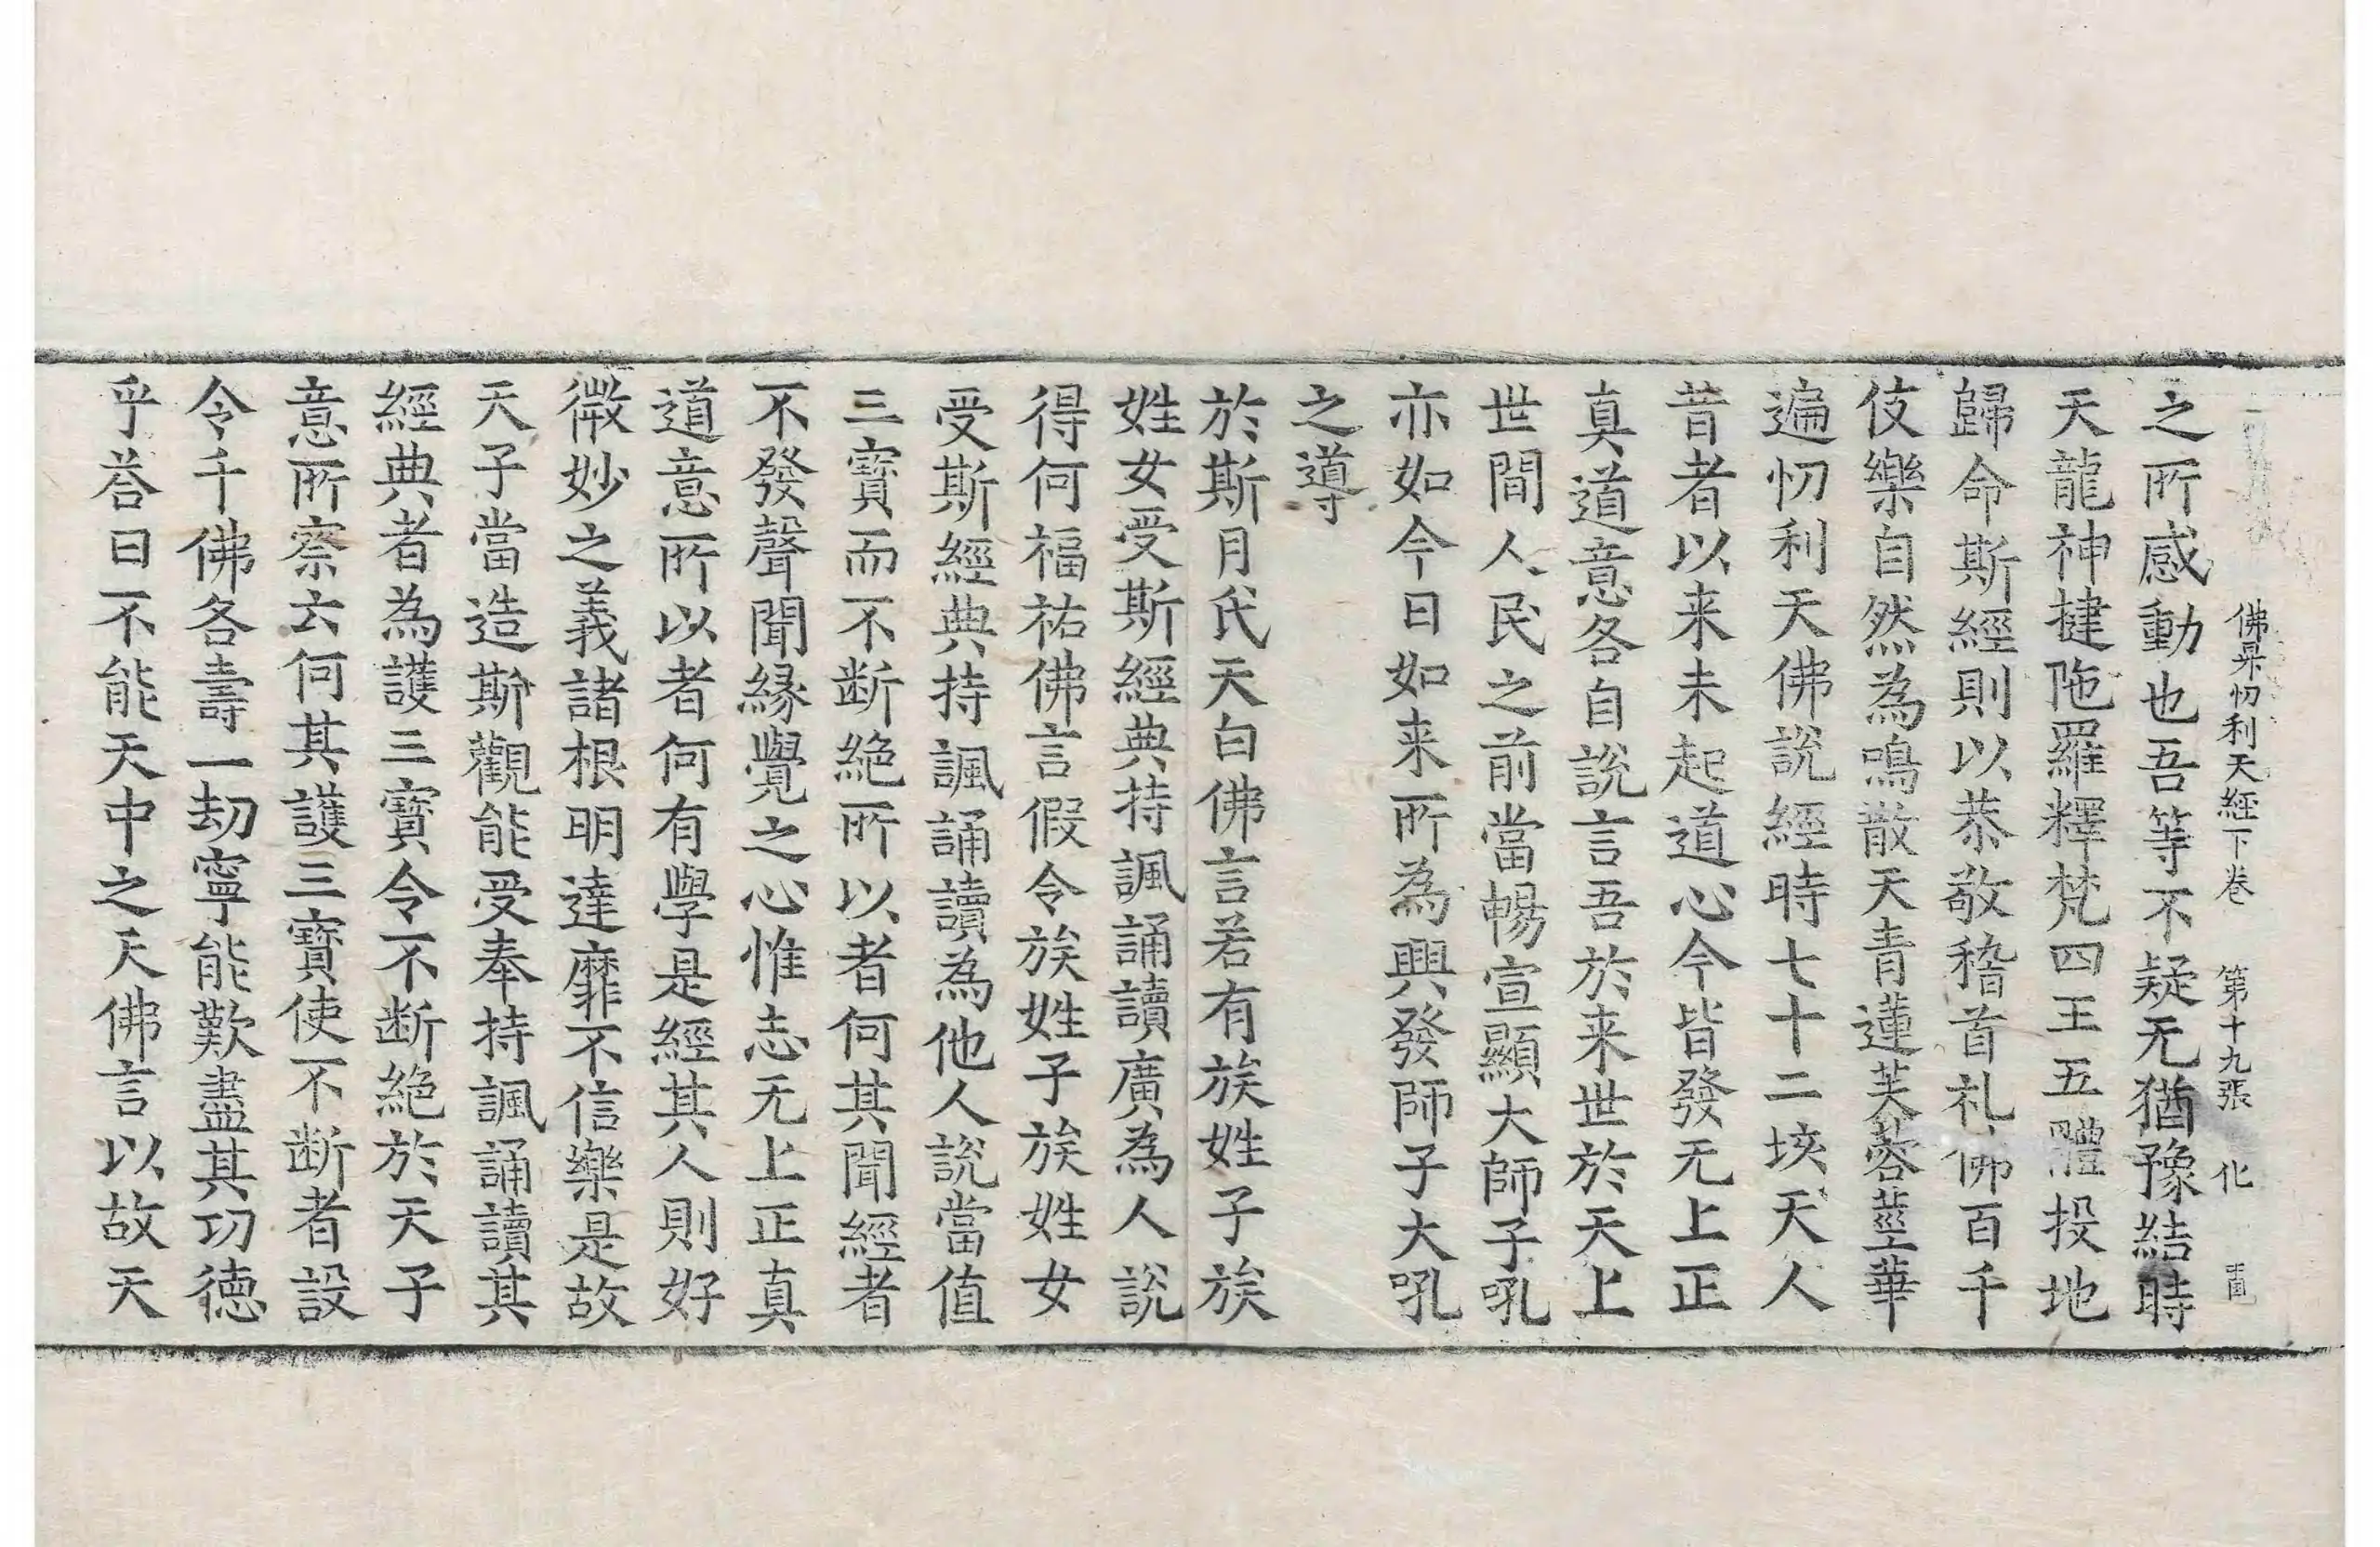 佛昇忉利天經下卷　第十九張　化
之所感動也吾等不疑无猶豫結時
天龍神揵陁羅釋梵四王五體投地
歸命斯經則以恭敬稽首礼佛百千
伎樂自然為鳴散天青蓮芙蓉莖華
遍忉利天佛說經時七十二垓天人
昔者以来未起道心今皆發无上正
真道意各自說言吾於来世於天上
世間人民之前當暢宣顯大師子吼
亦如今日如来所為興發師子大吼
之導
於斯月氏天白佛言若有族姓子族
姓女受斯經典持諷誦讀廣為人說
得何福祐佛言假令族姓子族姓女
受斯經典持諷誦讀為他人說當值
三寶而不断絕所以者何其聞經者
不發聲聞緣覺之心惟志无上正真
道意所以者何有學是經其人則好
微妙之義諸根明達靡不信樂是故
天子當造斯觀能受奉持諷誦讀其
經典者為護三寶令不断絕於天子
意所察云何其護三寶使不断者設
令千佛各壽一劫寧能歎盡其功德
乎荅曰不能天中之天佛言以故天